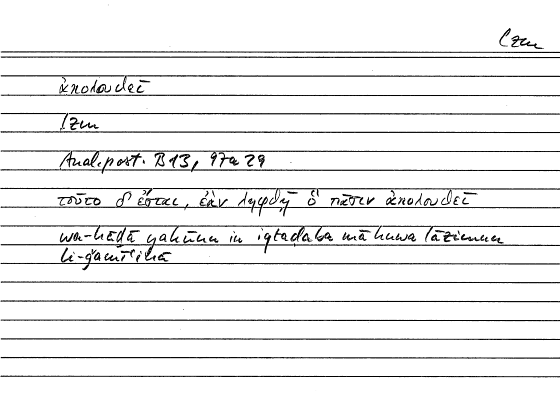 lzm
ἀκολουθεῖ
lzm
Anal. post. B 13, 97a 29
τοῦτο δ' ἔσται, ἐὰν ληφθῇ ὃ πᾶσιν ἀκολουθεῖ
wa-hāḏā yakūnu in iqtaḍaba mā huwa lāzimun
li-ǧamīʿihā